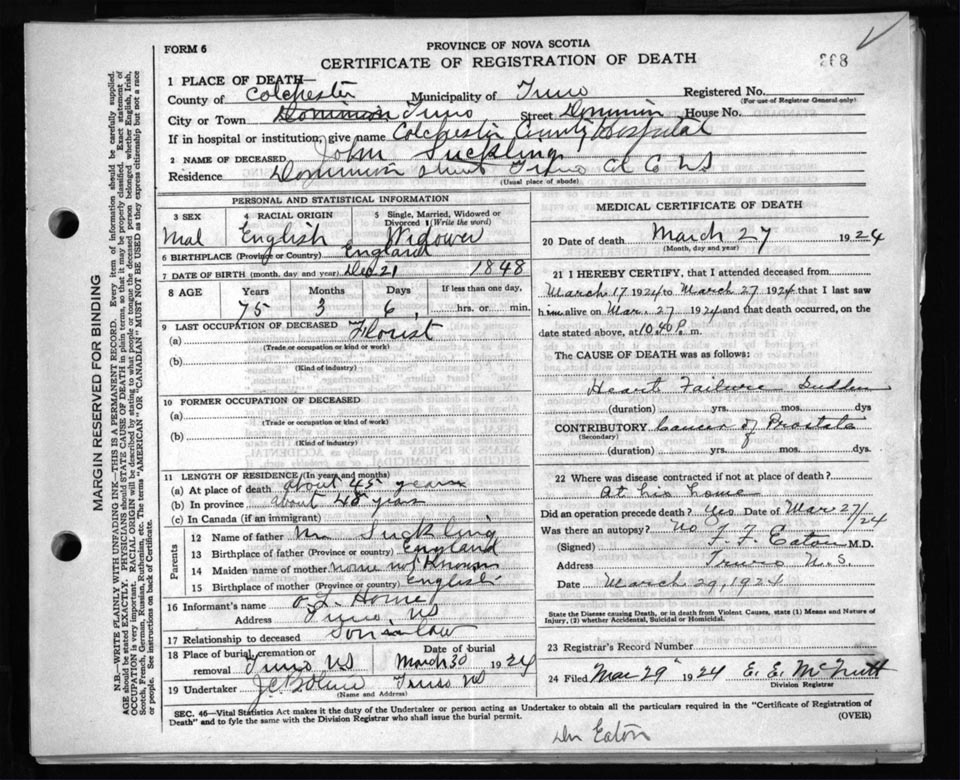 FORM 6
PROVINCE OF NOVA SCOTIA
CERTIFICATE OF REGISTRATION OF DEATH
368
1 PLACE OF DEATH—
County of Colchester Municipality of Truro Registered No.
(For use of Registrar General only)
City or Town Dominion Truro Street Dominion House No.
If in hospital or institution, give name Colchester County Hospital
2 NAME OF DECEASED John Suckling
Residence Dominion Street Truro Col Co NS
(Usual place of abode)
MARGIN RESERVED FOR BINDING
N.B.—WRITE PLAINLY WITH UNFADING INK—THIS IS A PERMANENT RECORD. Every item of information should be carefully supplied.
AGE should be stated EXACTLY. PHYSICIANS should STATE CAUSE OF DEATH in plain terms, so that it may be properly classified. Exact statement of
OCCUPATION is very important. RACIAL ORIGIN will be described by stating to what people or tongue the deceased person belonged whether English, Irish,
Scotch, French, German, Russian, Ruthenian, etc. The terms "AMERICAN" OR "CANADIAN" MUST NOT BE USED as they express citizenship but not a race
or people. See instructions on back of Certificate.
PERSONAL AND STATISTICAL INFORMATION
3 SEX 4 RACIAL ORIGIN 5 Single, Married, Widowed or Divorced (Write the word)
Mal English Widower
6 BIRTHPLACE (Province or Country) England
7 DATE OF BIRTH (month, day and year) Dec 21 1848
8 AGE Years Months Days If less than one day,
75 3 6 hrs. or min.
9 LAST OCCUPATION OF DECEASED
(a) Florist
(Trade or occupation or kind of work)
(b)
(Kind of industry)
10 FORMER OCCUPATION OF DECEASED
(a)
(Trade or occupation or kind of work)
(b)
(Kind of industry)
11 LENGTH OF RESIDENCE (In years and months)
(a) At place of death about 45 years
(b) In province about 48 years
(c) In Canada (if an immigrant)
Parents
12 Name of father Suckling
13 Birthplace of father (Province or country) England
14 Maiden name of mother name not Known
15 Birthplace of mother (Province or country) English
16 Informant's name Horne
Address Truro NS
17 Relationship to deceased Son in law
18 Place of burial, cremation or removal Truro NS Date of burial March 30 1924
19 Undertaker Truro NS
(Name and Address)
MEDICAL CERTIFICATE OF DEATH
20 Date of death March 27 1924
(Month, day and year)
21 I HEREBY CERTIFY, that I attended deceased from
March 17 1924 to March 27 1924 that I last saw
him alive on Mar. 27 1924 and that death occurred, on the
date stated above, at 10.40 P. m.
The CAUSE OF DEATH was as follows:
Heart Failure Sudden
(duration) yrs. mos. dys
CONTRIBUTORY Cancer of Prostate
(Secondary)
(duration) yrs. mos. dys.
22 Where was disease contracted if not at place of death?
At his home
Did an operation precede death? Yes Date of Mar 27/24
Was there an autopsy? No
(Signed) F. F. Eaton M.D.
Address Truro N.S.
Date March 29, 1924
State the Disease causing Death, or in death from Violent Causes, state (1) Means and Nature of
Injury, (2) whether Accidental, Suicidal or Homicidal.
23 Registrar's Record Number
24 Filed Mar 29 1924 E. E. McNutt
Division Registrar
SEC. 46—Vital Statistics Act makes it the duty of the Undertaker or person acting as Undertaker to obtain all the particulars required in the "Certificate of Registration of
Death" and to fyle the same with the Division Registrar who shall issue the burial permit. (OVER)
Dr Eaton